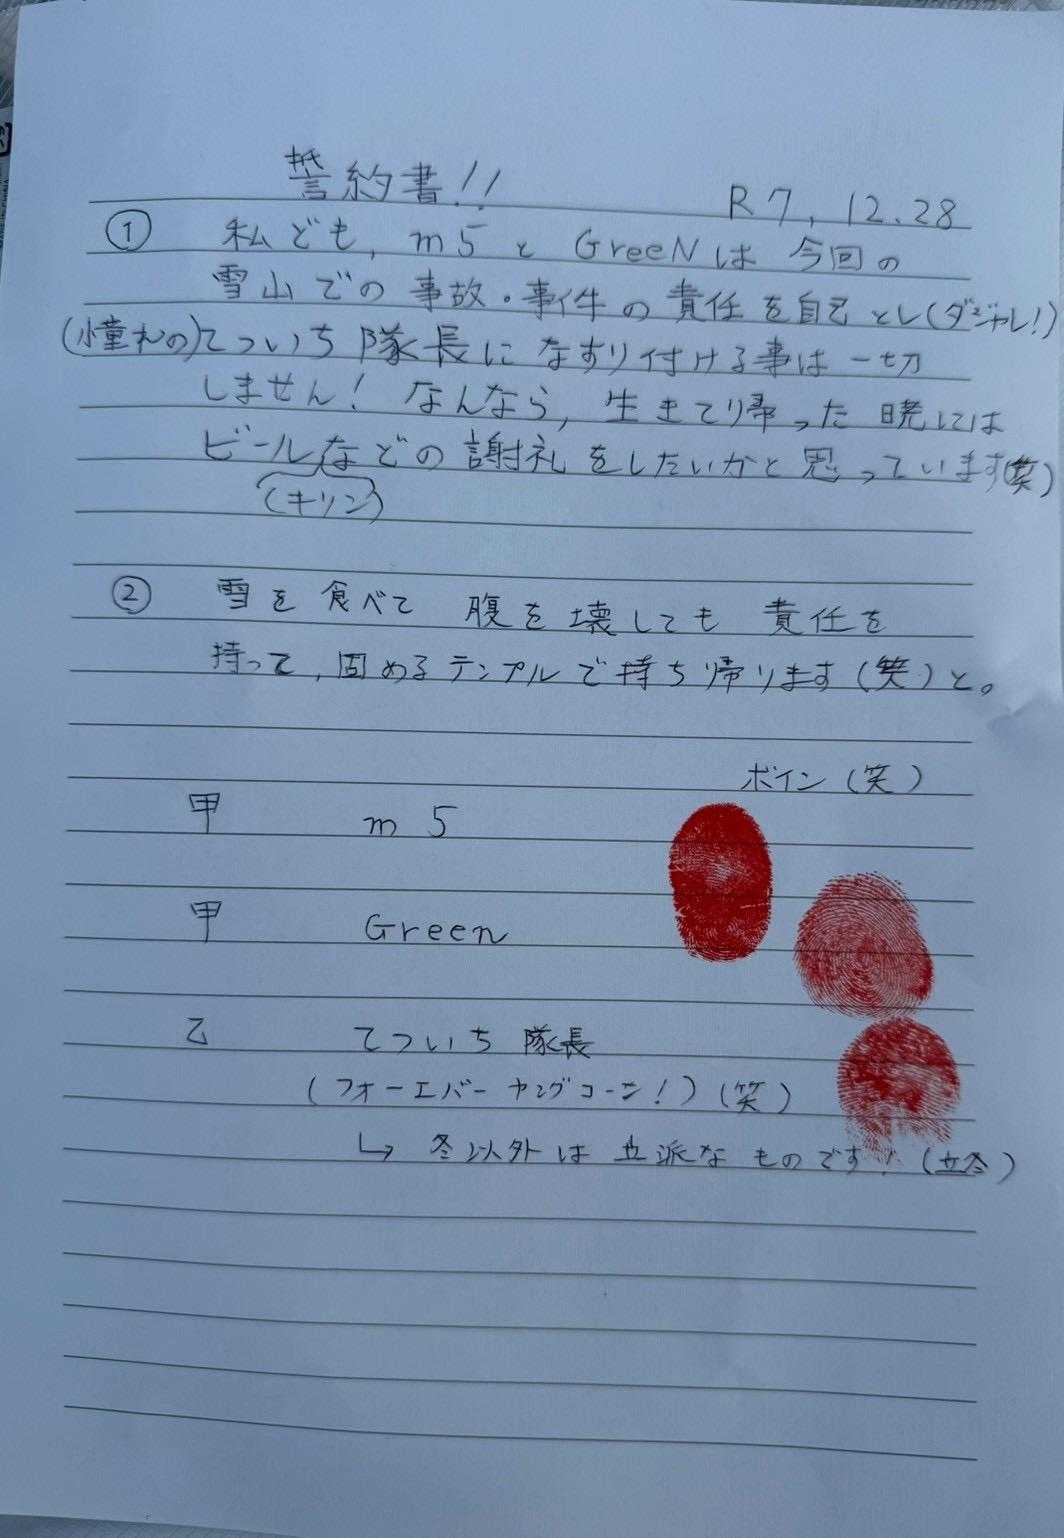 誓約書!!
R7,12.28
① 私ども,m5とGreeNは今回の
雪山での事故・事件の責任を自己とし(ダジャレ!)
(憧れの)てついち隊長になすり付ける事は一切
しません!なんなら,生きて帰った暁には
ビールなどの謝礼をしたいかと思っています(笑)
(キリン)
② 雪を食べて腹を壊しても責任を
持って,固めるテンプルで持ち帰ります(笑)と。
ボイン(笑)
甲 m5
甲 Green
乙 てついち隊長
(フォーエバーヤングコーン!)(笑)
↳冬以外は立派なものです!(立冬)